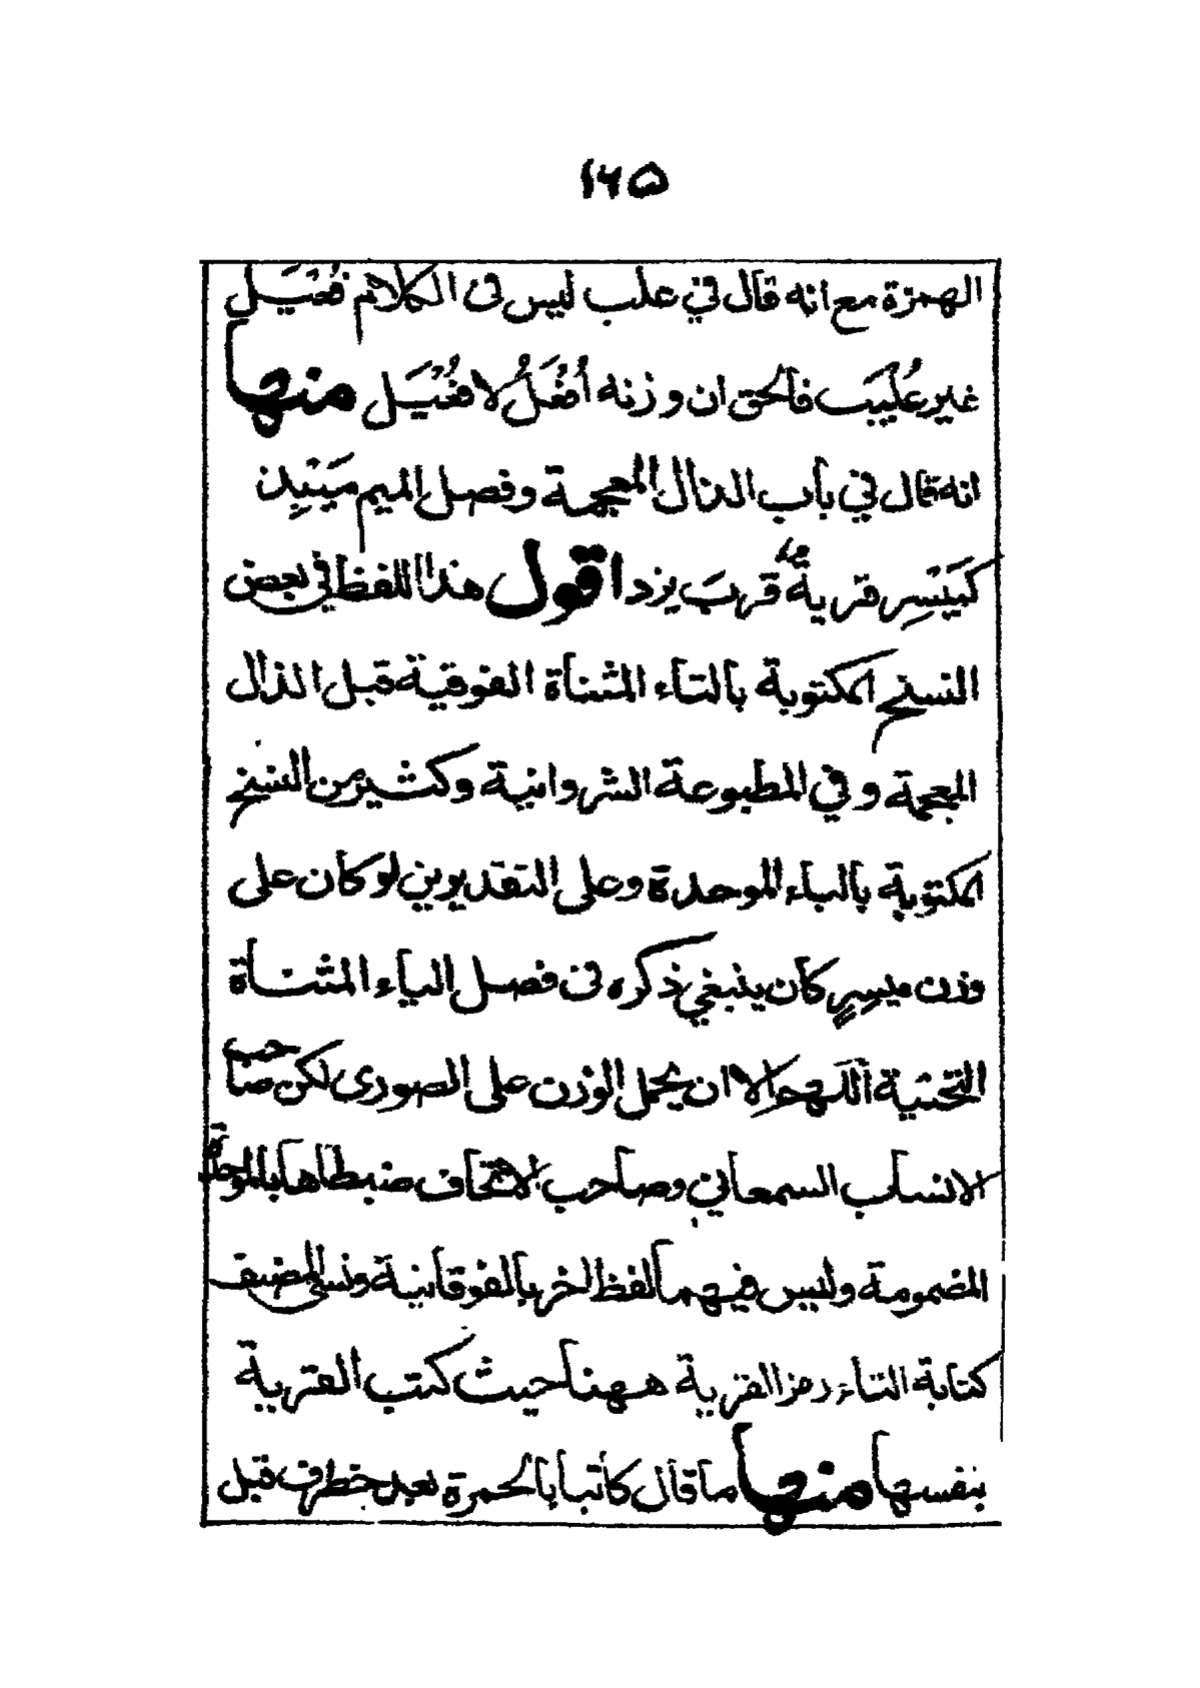 ١٦٥
الهمزة مع انه قال في علب ليس في الكلام فُعْيَل
غير عُلْيَب فالحق ان وزنه اُفْعَلُ لا فُعْيَل منها
انه قال في باب الذال المعجمة وفصل الميم مَيْبِذ
كَمَيْسِر قرية قَربَ يزد اقول هذا اللفظ في بعض
النسخ المكتوبة بالتاء المثناة الفوقية قبل الذال
المعجمة و في المطبوعة الشروانية وكثير من النسخ
المكتوبة بالباء الموحدة وعلى التقديرين لو كان على
وزن ميسِرٍ كان ينبغي ذكره في فصل الياء المثناة
التحتية اللهم الا ان يحمل الوزن على الصورى لكن صاحب
الانساب السمعاني وصاحب الاتحاف ضبطاها بالموحدة
المضمومة وليس فيهما لفظ اخر بالفوقانية ونسى المصنف
كتابة التاء رمز القرية ههنا حيث كتب القرية
بنفسها منها ما قال كاتبا بالحمرة بعد خطرف قبل